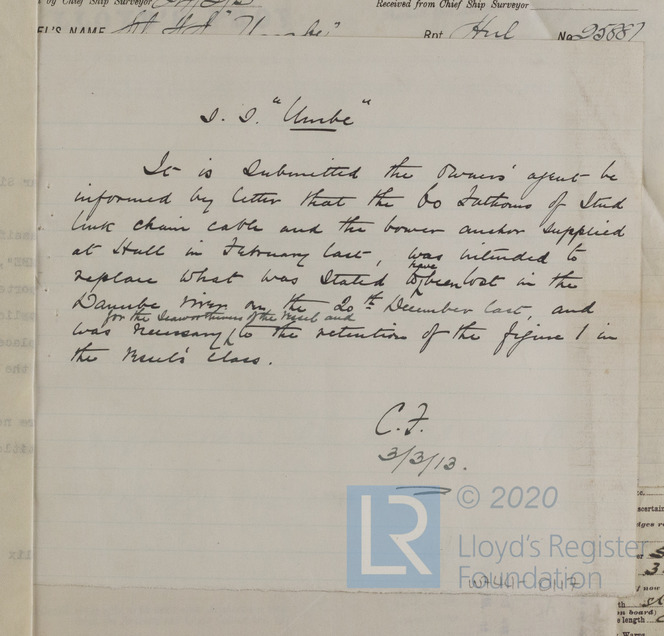 by Chief Ship Surveyor
Received from Chief Ship Surveyor
EL'S NAME
Rpt. Hul No 25887
S. S. "Umbe"
It is submitted the Owners' agent be
informed by letter that the 60 Fathoms of Stud
link chain cable and the bower anchor supplied
at Hull in February last, was intended to
replace what was stated to have been lost in the
Danube River on the 20th December last, and
was necessary for the seaworthiness of the vessel and to the retention of the figure 1 in
the vessel's class.
C.F.
3/3/13.
LR
© 2020
Lloyd's Register
Foundation